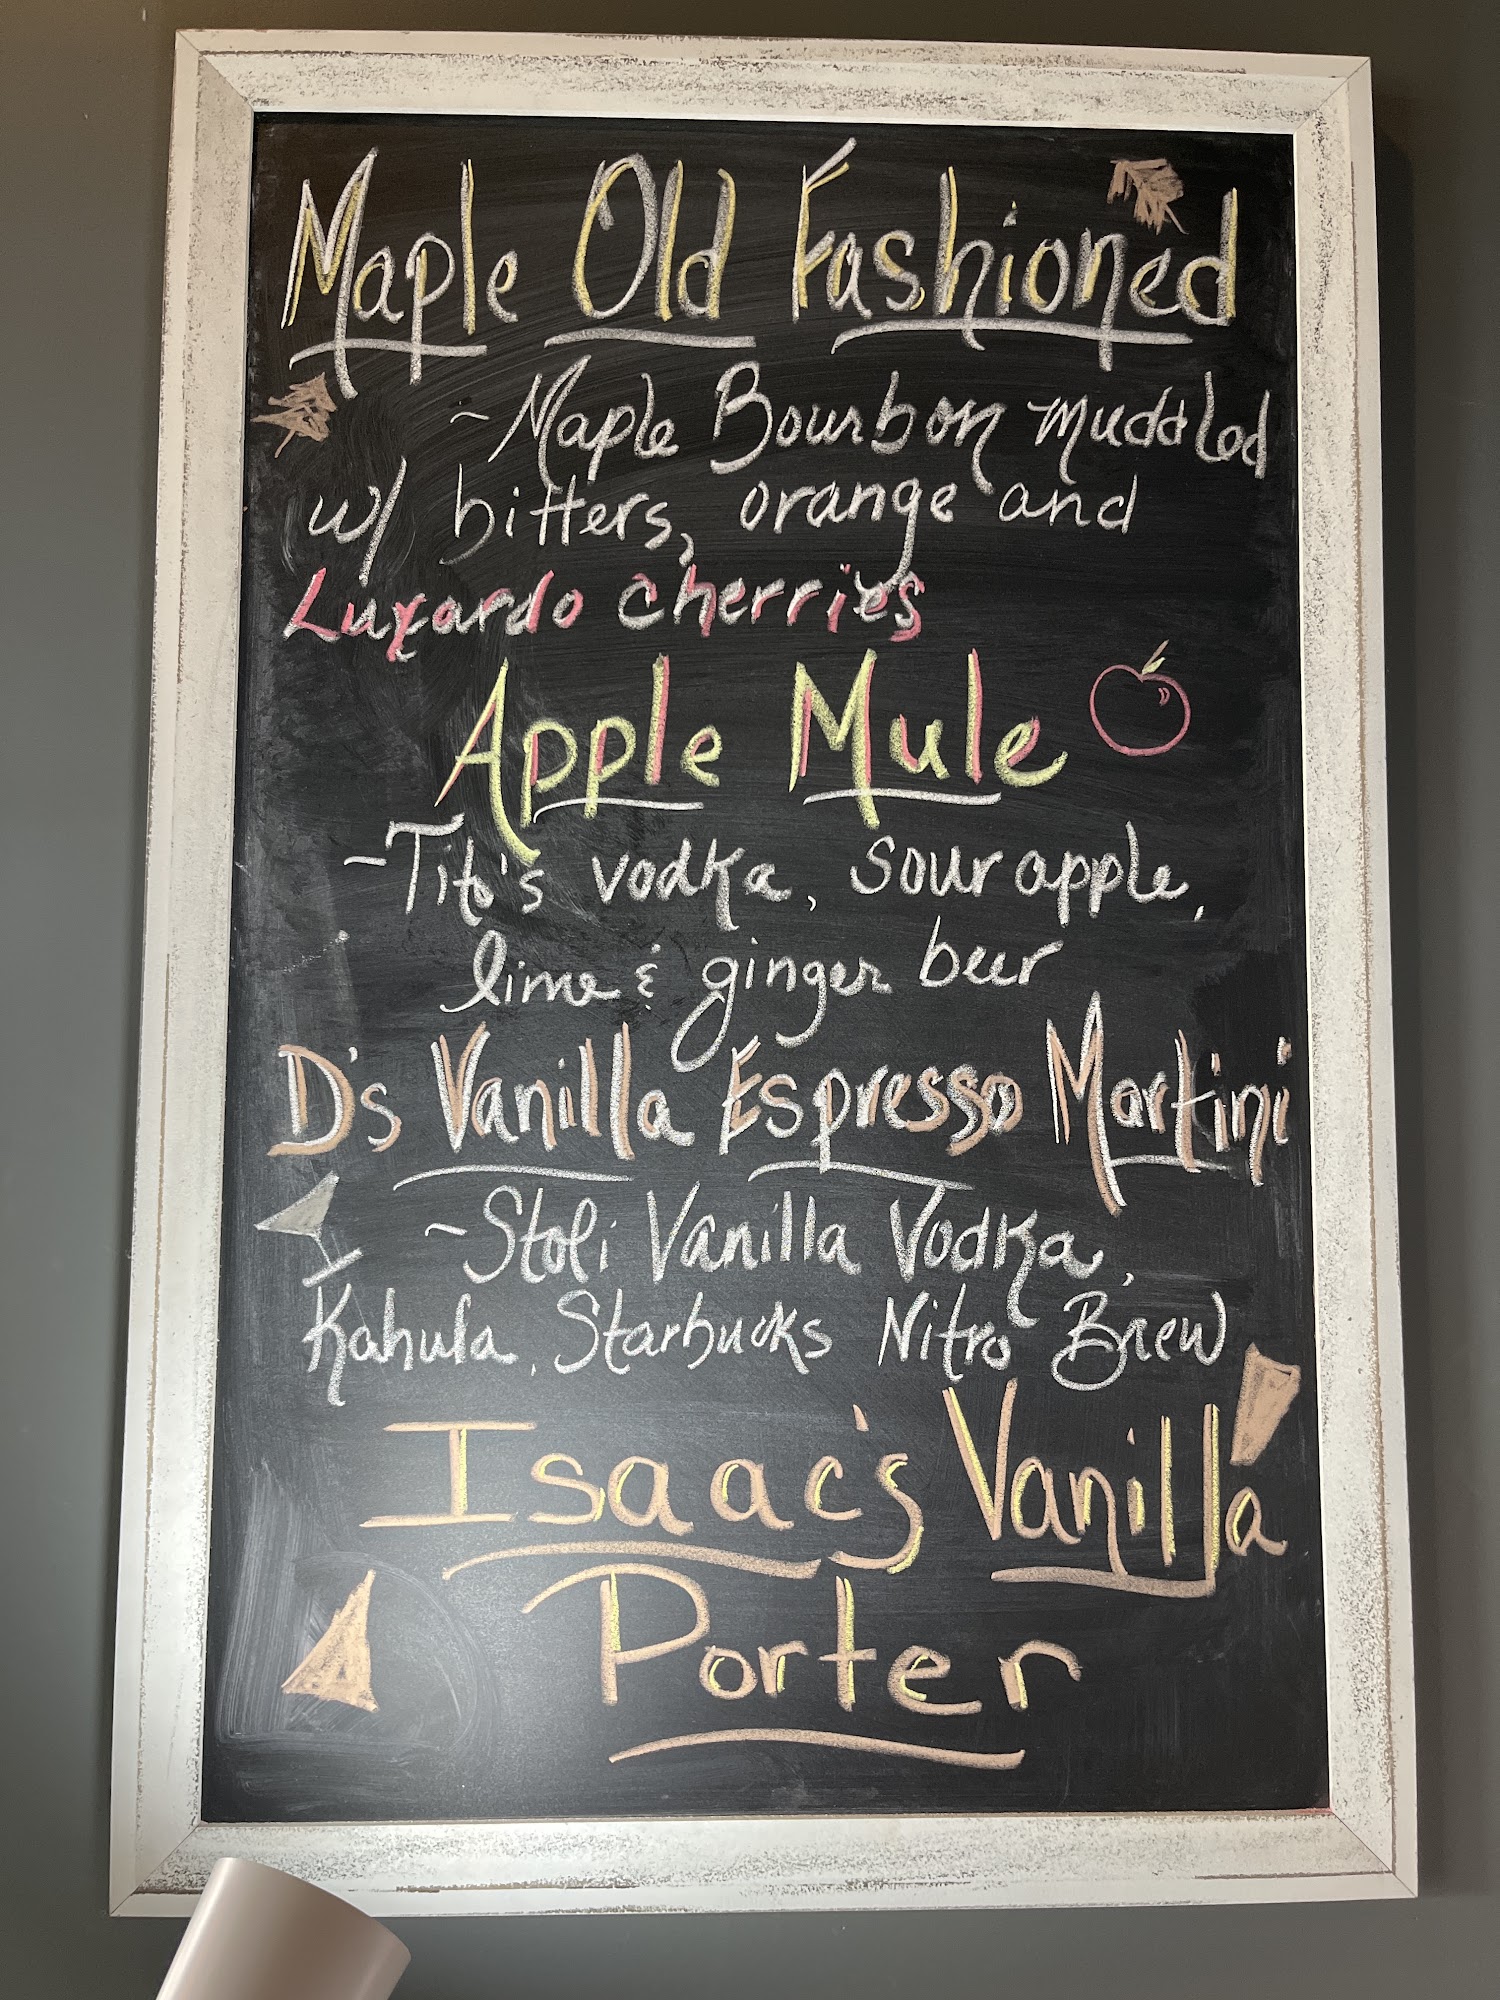 Maple Old Fashioned
~Maple Bourbon muddled
w/ bitters, orange and
Luxardo cherries
Apple Mule
~Tito's vodka, sour apple,
lime & ginger beer
D's Vanilla Espresso Martini
~Stoli Vanilla Vodka,
Kahula, Starbucks Nitro Brew
Isaac's Vanilla
Porter